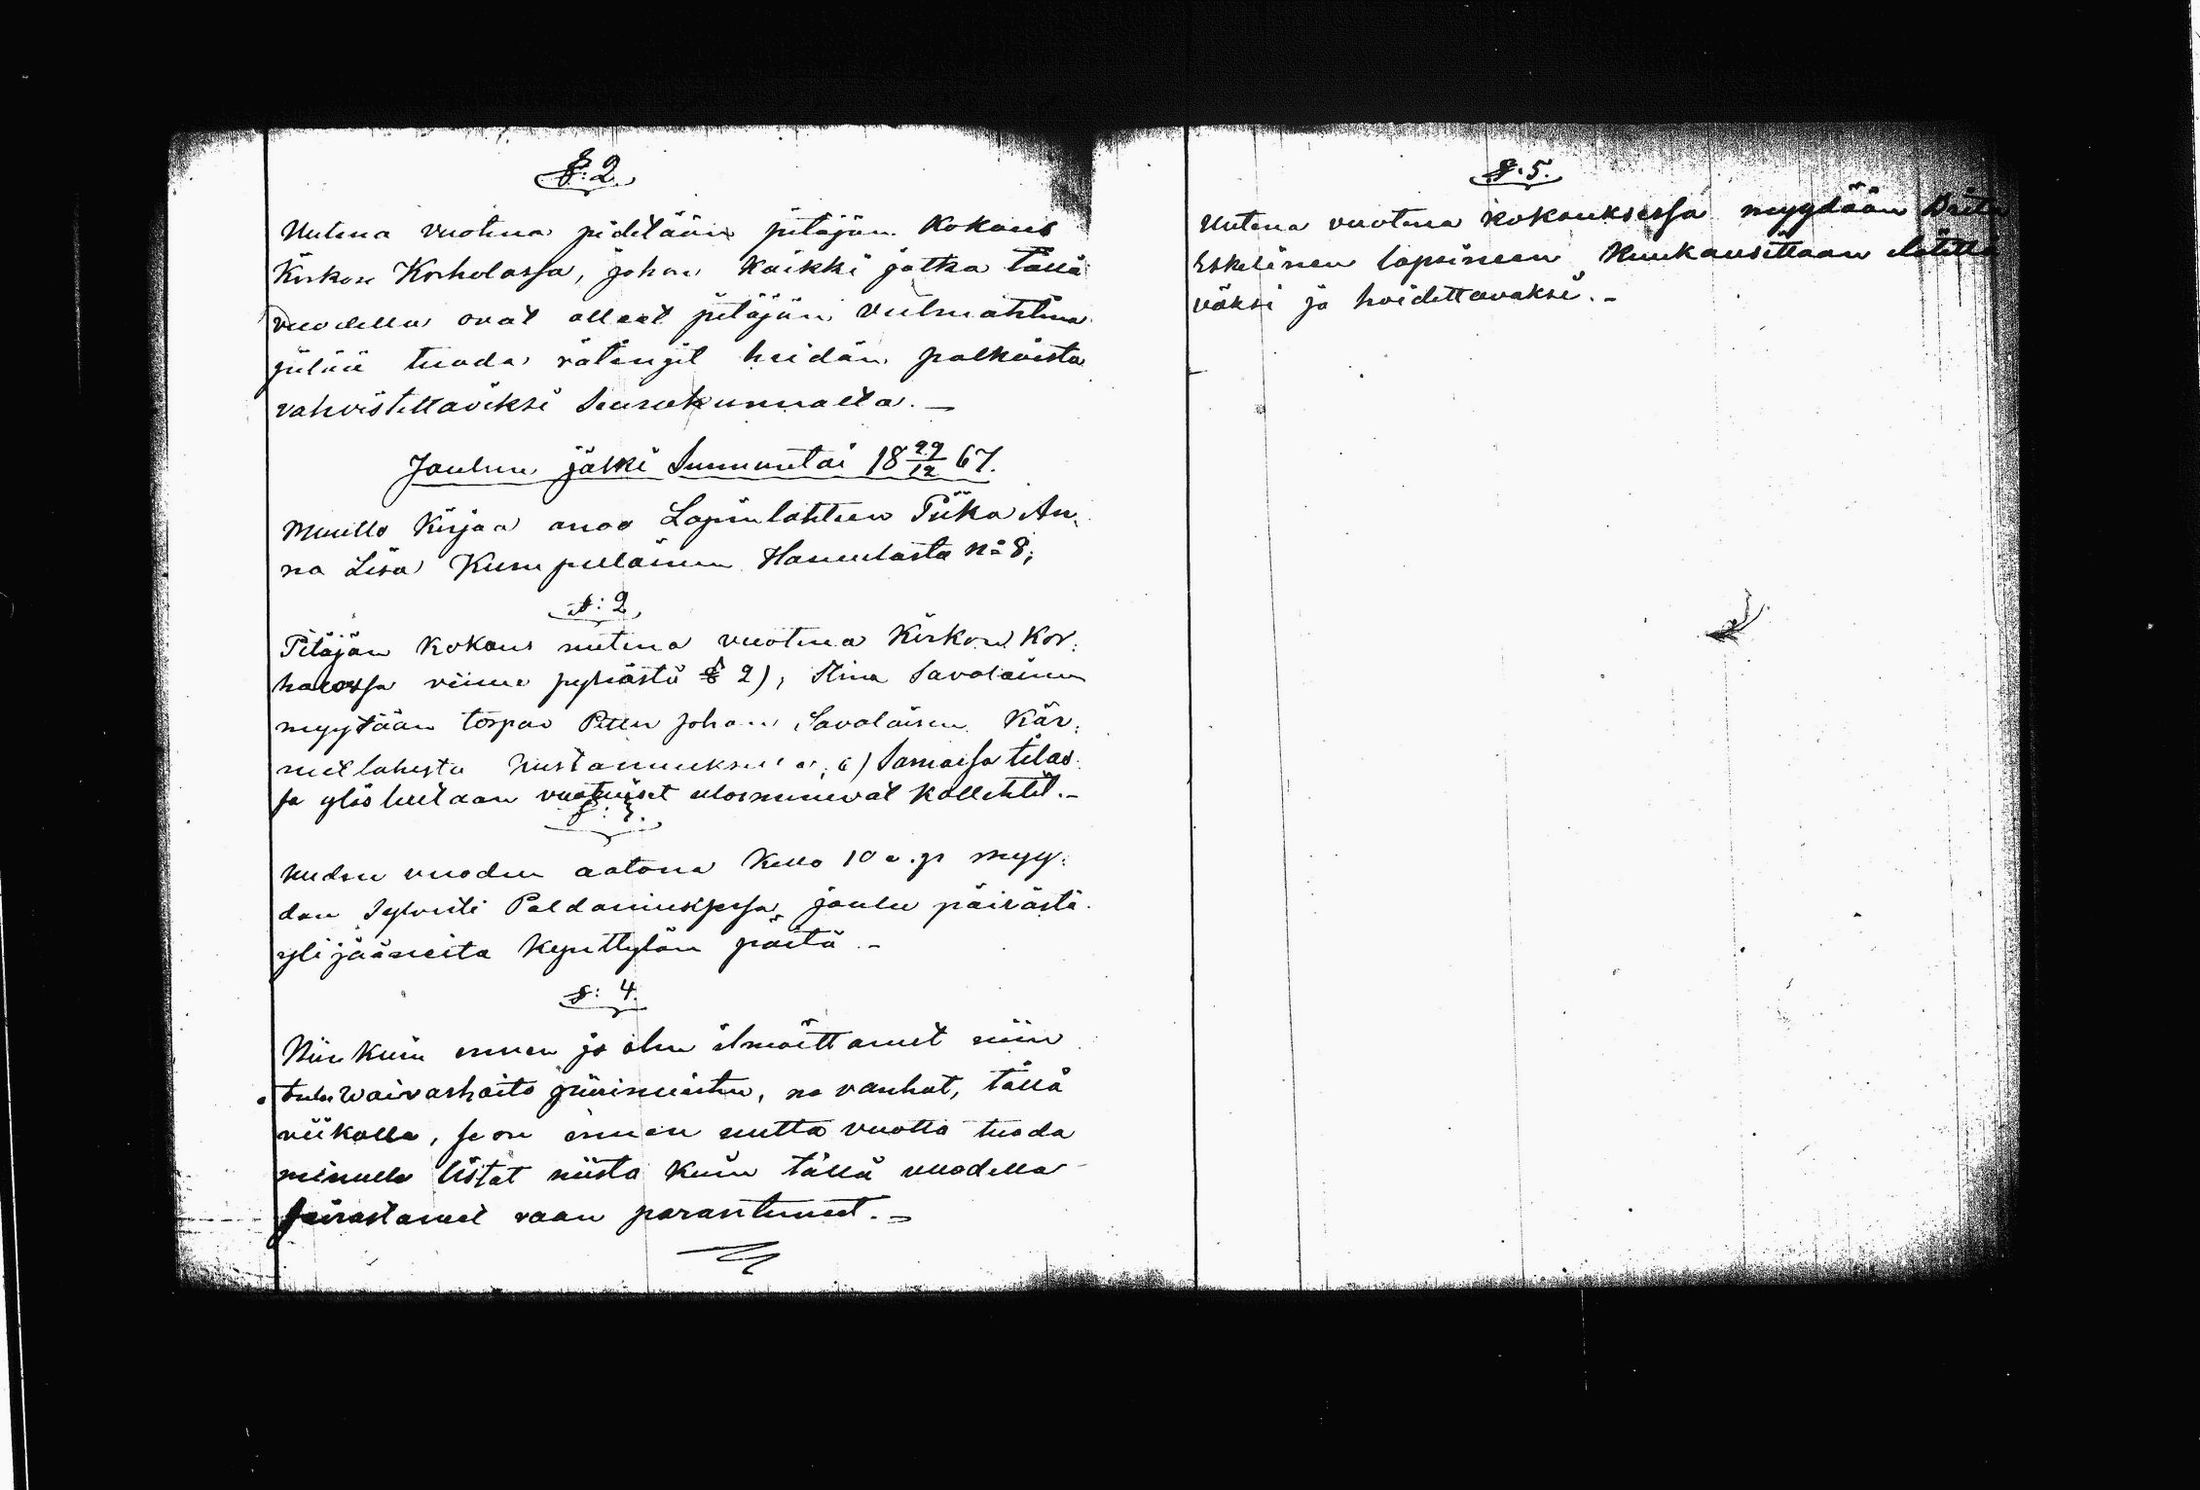 §: 2.
Uutena vuotena pidetään pitäjän Kokous
Kirkon Korholassa, johon kaikki jotka tällä
vuodella ovat olleet pitäjän
pitää tuoda rätingit heidän palkoista
vahvistettaviksi Seurakunnalta. —
Joulun jälki Sunnuntai 18 29/12 67.
Muutto Kirjaa anoo Lapinlahteen Piika An,
na Lisa Kumpulainen Hamulasta No 8;
§: 2,
Pitäjän kokous uutena vuotena Kirkon Kor,
halossa viime pyhästä § 2), Stina Savolainen
myytään torpar Petter Johan Savolaisen Kär,
mellahesta kustannuksella, c) Samassa tilas,
sa ylös luetaan vuotuiset ulosmenevät Kollehtit. –
§: 3.
Uuden vuoden aatona Kello 10 e. p. myy,
dän Paldaniuksessa joulu päivästä
ylijääneitä kynttylän päitä. –
§: 4.
Niin kuin ennen jo olen ilmoittanut niin
tulee Waivashoito piirimiesten, ne vanhat, tällä
viikolla, se on ennen uutta vuotta tuoda
minulle listat niistä kuin tällä vuodella
sairastaneet vaan parantuneet. –
§: 5.
Uutena vuotena kokouksessa myydään Brita
Eskelinen lapsineen Kuukausittaan elätettä
väksi ja hoidettavaksi. –